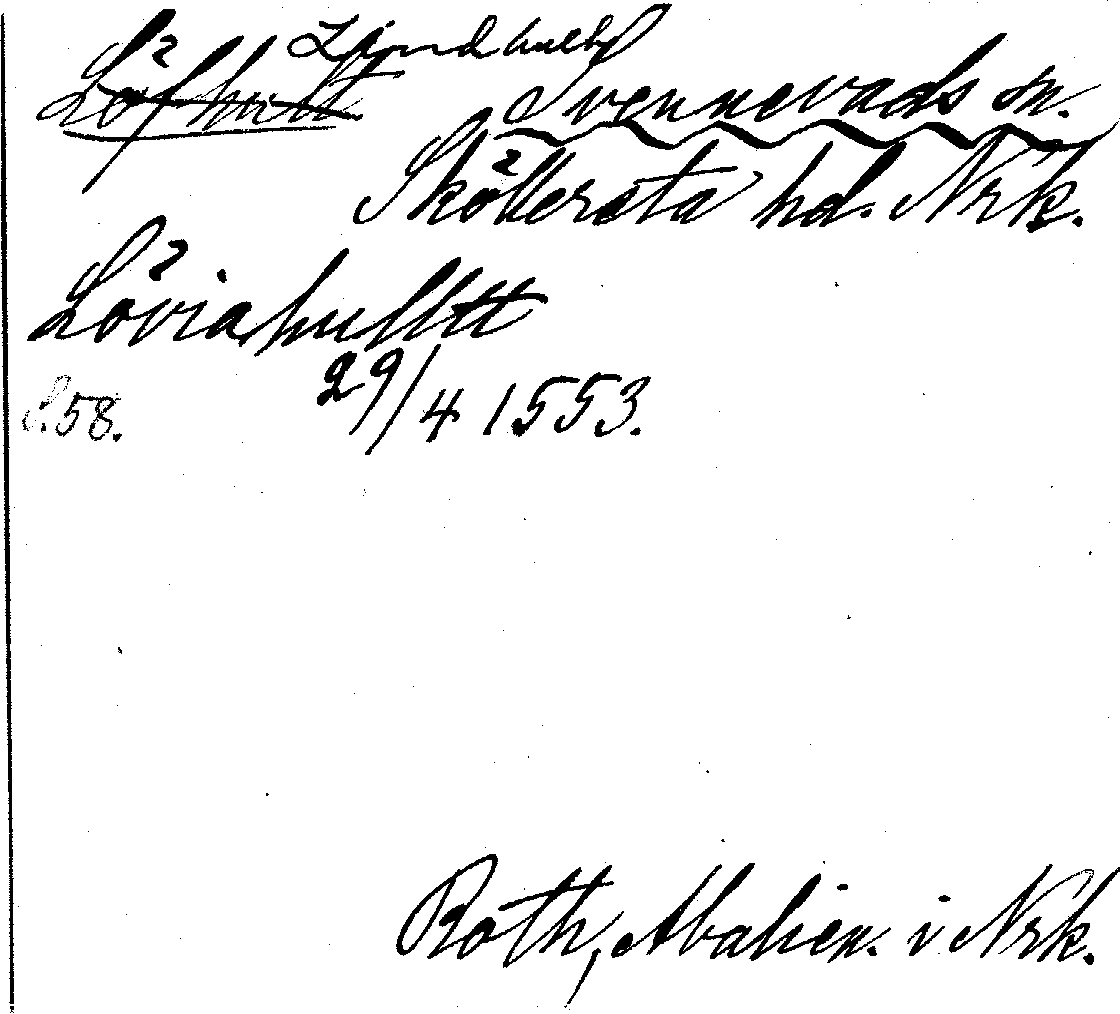 Löfhult Lindhult Svennevads sn.
Sköllersta hd. Nrk.
Löviahulltt
S. 58. 29/4 1553.
Roth, Abalien. i Nrk.